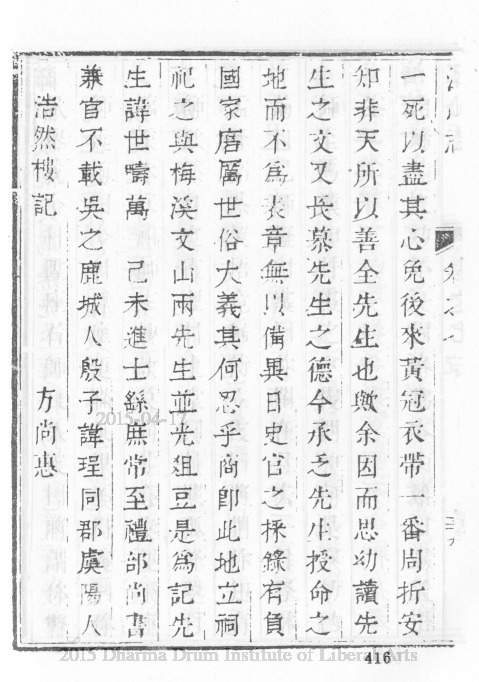 一死以盡其心免後來黃冠衣帶一番周折安
知非天所以善全先生也歟余因而思幼讀先
生之文又長慕先生之德今承乏先生授命之
地而不為表章無以備異日史官之採錄有負
國家磨厲世俗大義其何忍乎商即此地立祠
祀之與梅溪文山兩先生並光俎豆是為記先
生諱世疇萬 己未進士錄庶常至禮部尚書
兼官不載吳之鹿城人殷子諱珵同郡虞陽人
浩然樓記 方尚惠
2015-04-17
2015 Dharma Drum Institute of Liberal Arts
416